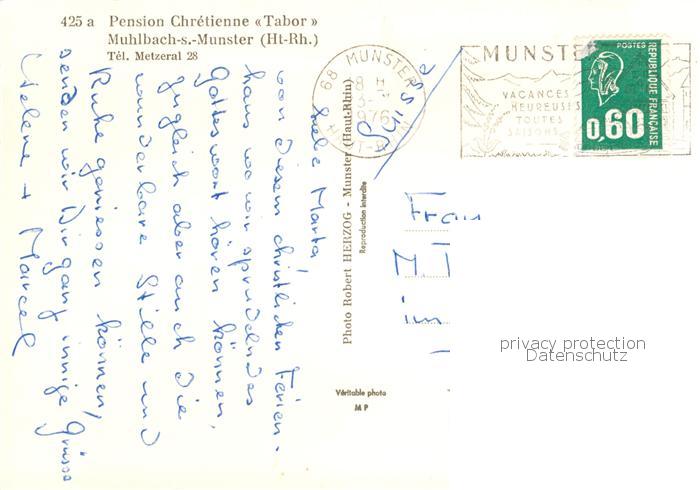 425 a Pension Chrétienne «Tabor»
Muhlbach-s.-Munster (Ht-Rh.)
Tél. Metzeral 28
Liebe Marta,
von diesem christlichen Ferien-
haus wo wir sprudelndes
Gotteswort hören können,
zugleich aber auch die
wunderbare Stille und
Ruhe geniessen können,
senden wir Dir ganz innige Grüsse
Helene + Marcel
Photo Robert HERZOG - Munster (Haut-Rhin)
Reproduction interdite
Véritable photo
M P
68 MUNSTER
1976
MUNSTE
VACANCES
HEUREUSES
TOUTES
SAISONS
POSTES
REPUBLIQUE FRANÇAISE
0,60
Suisse
Frau
M
in
privacy protection
Datenschutz